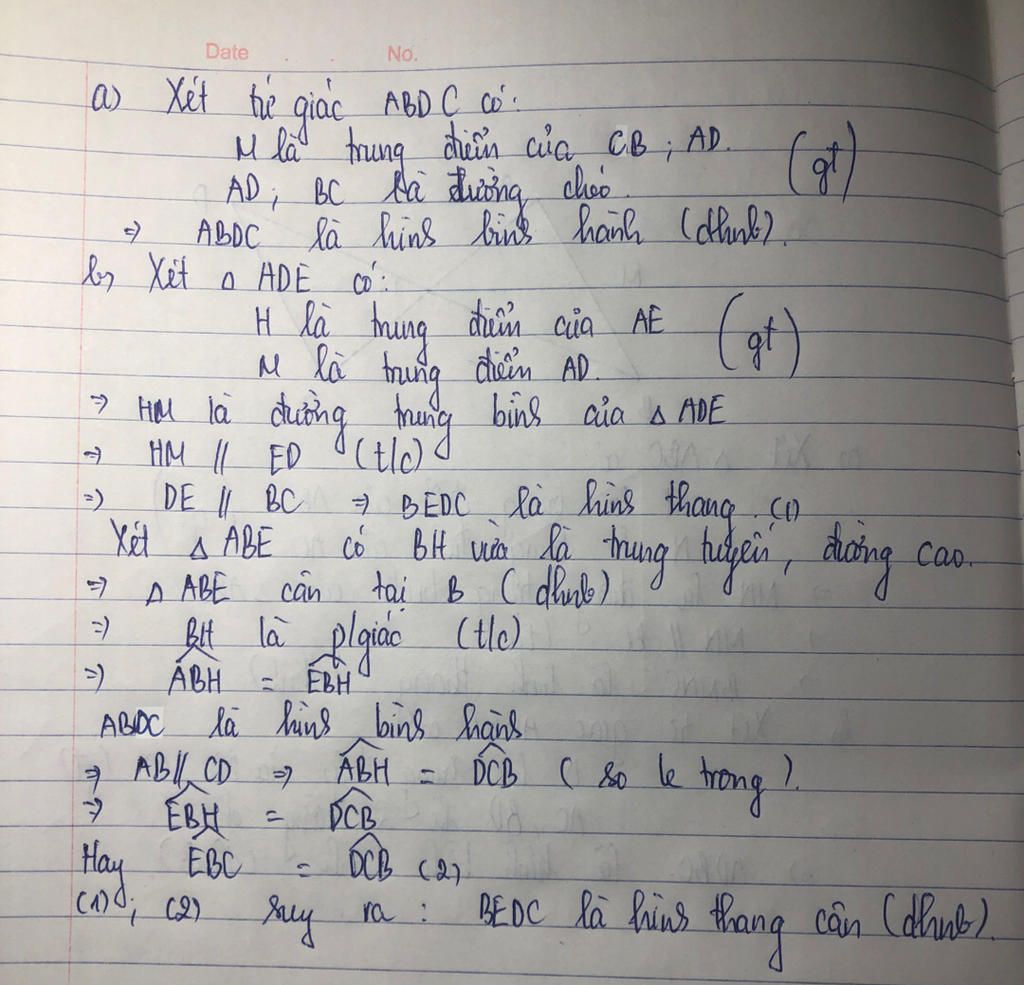 Date . . No.
a) Xét tứ giác ABDC có:
M là trung điểm của CB ; AD. (gt)
AD ; BC là đường chéo.
⇒ ABDC là hình bình hành (dhnb).
b, Xét △ ADE có:
H là trung điểm của AE (gt)
M là trung điểm AD.
⇒ HM là đường trung bình của △ ADE
⇒ HM // ED (t/c)
⇒ DE // BC ⇒ BEDC là hình thang. (1)
Xét △ ABE có BH vừa là trung tuyến, đường cao.
⇒ △ ABE cân tại B (dhnb)
⇒ BH là p/giác (t/c)
⇒ \widehat{ABH} = \widehat{EBH}
ABDC là hình bình hành
⇒ AB // CD ⇒ \widehat{ABH} = \widehat{DCB} (so le trong).
⇒ \widehat{EBH} = \widehat{DCB}
Hay \widehat{EBC} = \widehat{DCB} (2)
(1) ; (2) suy ra : BEDC là hình thang cân (dhnb).